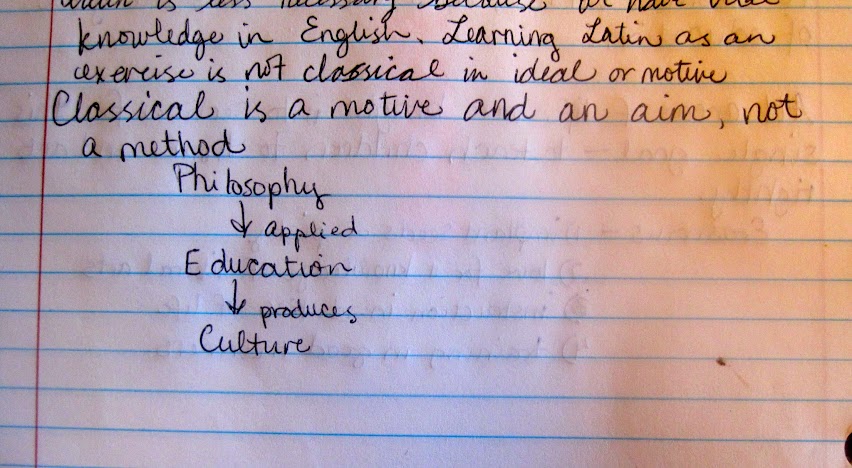 is less necessary because we have
knowledge in English. Learning Latin as an
exercise is not classical in ideal or motive
Classical is a motive and an aim, not
a method
Philosophy
↓ applied
Education
↓ produces
Culture